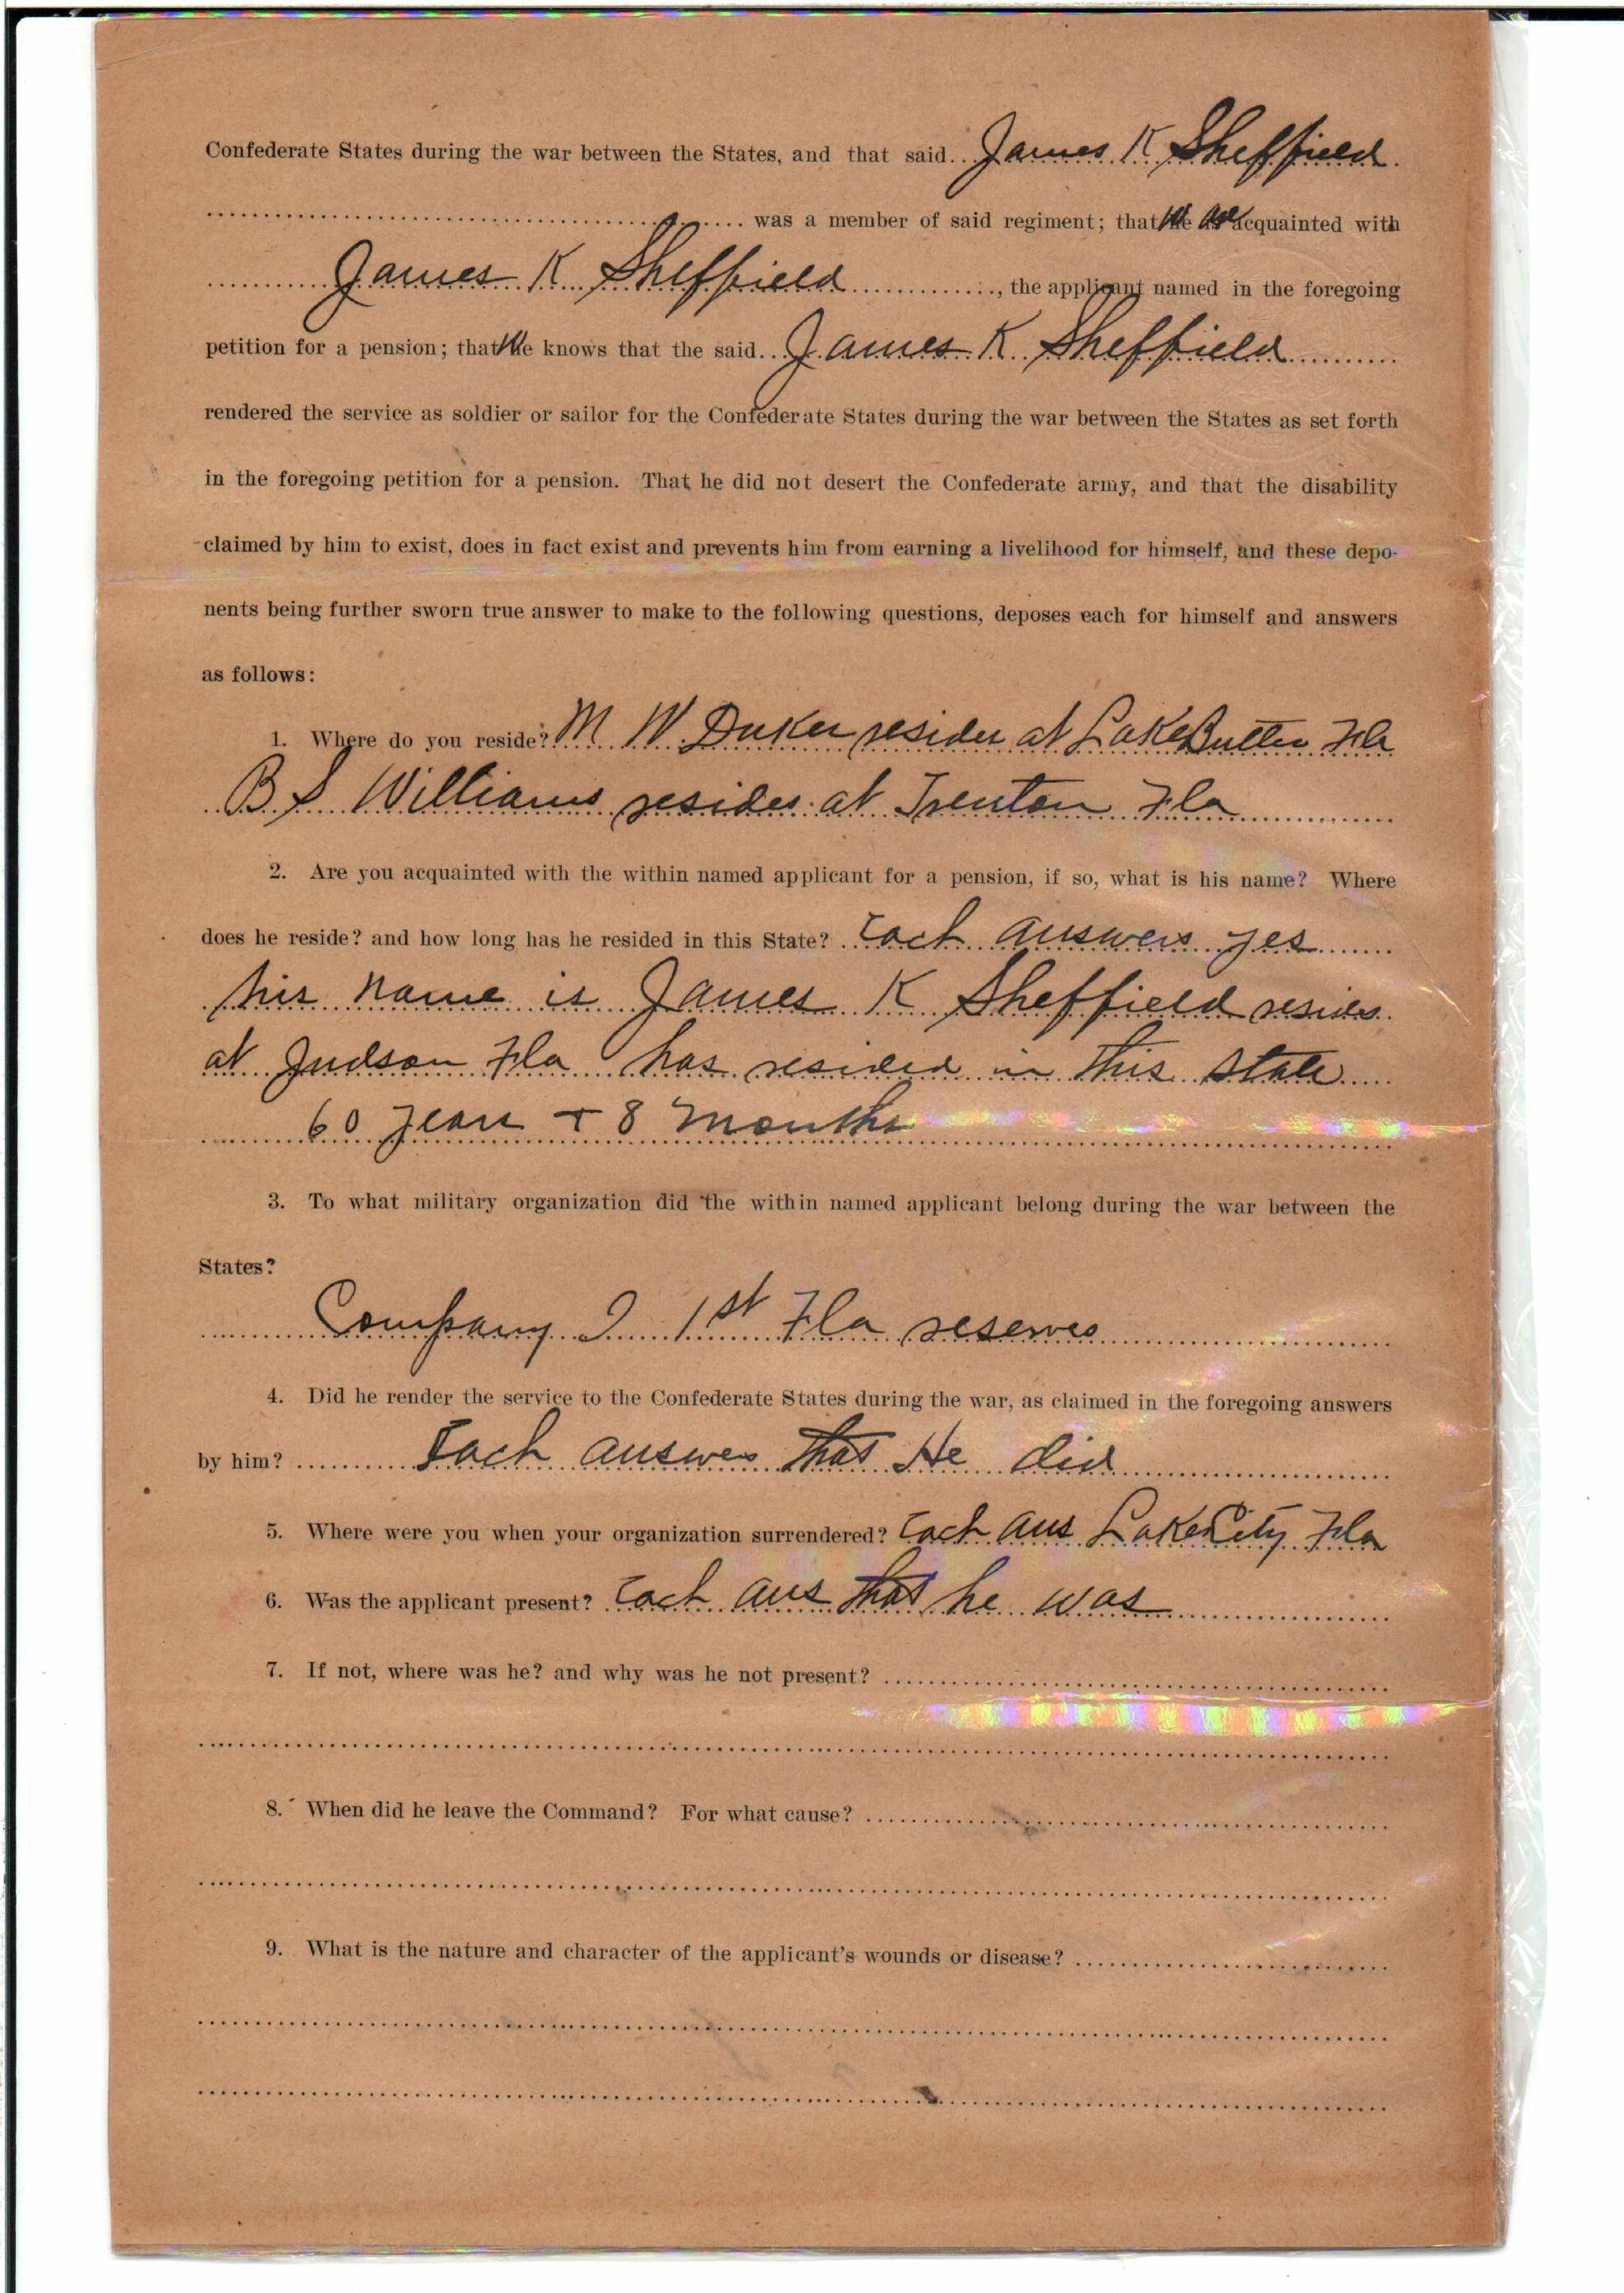 Confederate States during the war between the States, and that said James K Sheffield
was a member of said regiment; that We are acquainted with
James K Sheffield, the applicant named in the foregoing
petition for a pension; that We knows that the said James K Sheffield
rendered the service as soldier or sailor for the Confederate States during the war between the States as set forth
in the foregoing petition for a pension. That he did not desert the Confederate army, and that the disability
claimed by him to exist, does in fact exist and prevents him from earning a livelihood for himself, and these depo-
nents being further sworn true answer to make to the following questions, deposes each for himself and answers
as follows:
1. Where do you reside? M W Duker resides at Lake Butler Fla
B S Williams resides at Trenton Fla
2. Are you acquainted with the within named applicant for a pension, if so, what is his name? Where
does he reside? and how long has he resided in this State? Each answers yes
his name is James K Sheffield resides
at Judson Fla has resided in this State
60 years + 8 months
3. To what military organization did the within named applicant belong during the war between the
States?
Company I 1st Fla reserves
4. Did he render the service to the Confederate States during the war, as claimed in the foregoing answers
by him? Each answers that He did
5. Where were you when your organization surrendered? Each ans Lake City Fla
6. Was the applicant present? Each ans that he was
7. If not, where was he? and why was he not present?
8. When did he leave the Command? For what cause?
9. What is the nature and character of the applicant's wounds or disease?